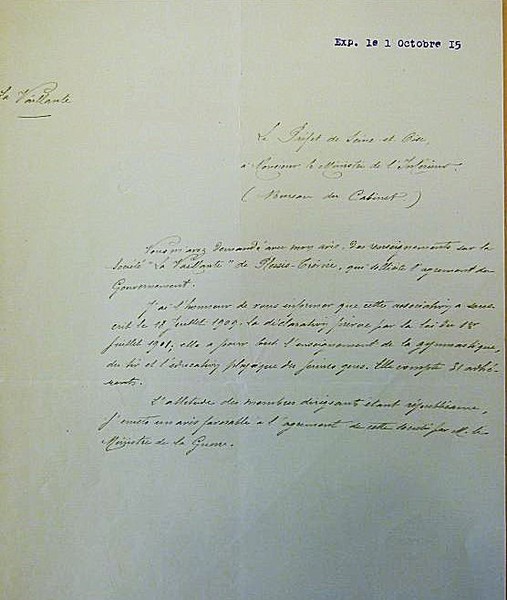 Exp. le 1 Octobre 15
La Vaillante
Le Préfet de Seine-et-Oise,
à Monsieur le Ministre de l'Intérieur.
(Bureau du Cabinet.)
Vous m'avez demandé avec mon avis, des renseignements sur la
Société "La Vaillante" de Plessis-Trévise, qui sollicite l'agrément du
Gouvernement.
J'ai l'honneur de vous informer que cette association a sous-
crit le 18 Juillet 1909, la déclaration prévue par la loi du 1er
Juillet 1901, elle a pour but l'enseignement de la gymnastique,
du tir et l'éducation physique des jeunes gens. Elle compte 31 adhé-
rents.
L'attitude des membres dirigeant étant républicaine,
j'émets un avis favorable à l'agrément de cette société par M. le
Ministre de la Guerre.